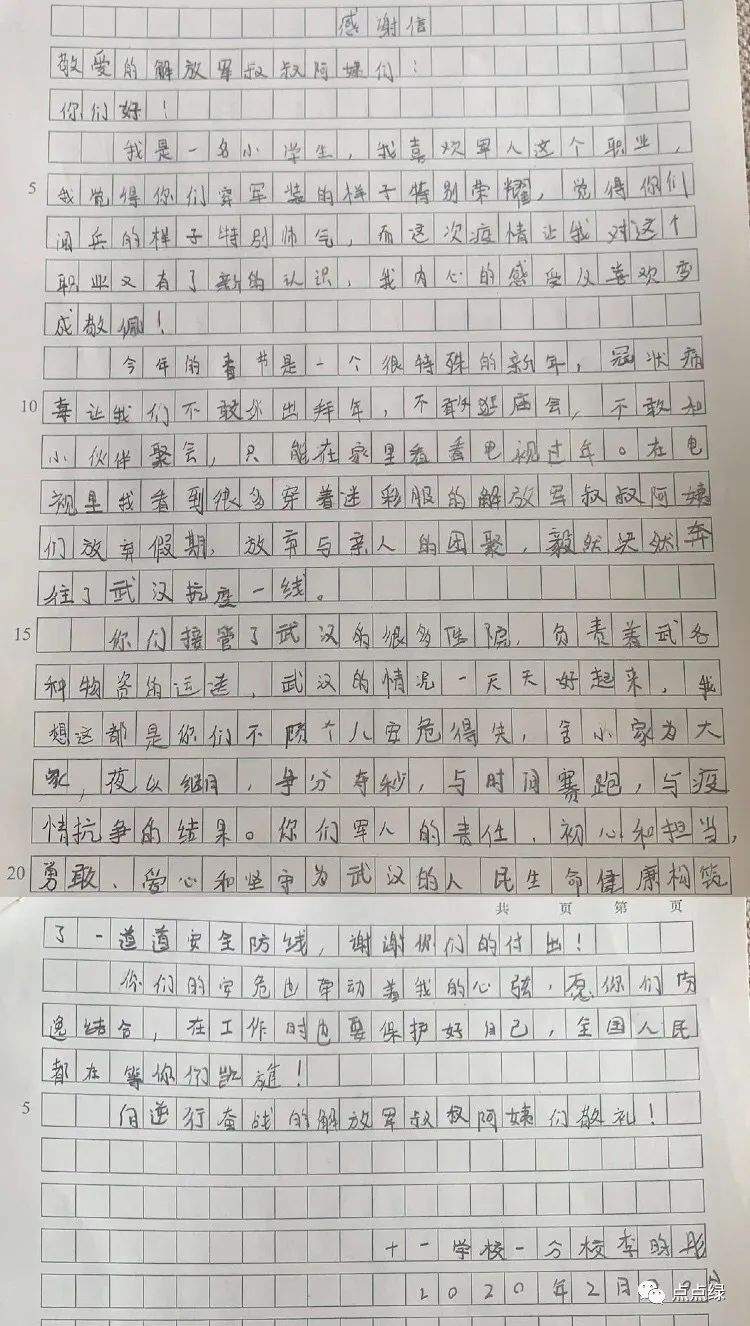 感谢信
敬爱的解放军叔叔阿姨们：
你们好！
我是一名小学生，我喜欢军人这个职业，
5 我觉得你们穿军装的样子特别荣耀，觉得你们
阅兵的样子特别帅气，而这次疫情让我对这个
职业又有了新的认识，我内心的感受从喜欢变
成敬佩！
今年的春节是一个很特殊的新年，冠状病
10 毒让我们不敢外出拜年，不敢逛庙会，不敢和
小伙伴聚会，只能在家里看看电视过年。在电
视里我看到很多穿着迷彩服的解放军叔叔阿姨
们放弃假期，放弃与亲人的团聚，毅然决然奔
往了武汉抗疫一线。
15 你们接管了武汉的很多医院，负责着武各
种物资的运送，武汉的情况一天天好起来，我
想这都是你们不顾个人安危得失，舍小家为大
家，夜以继日，争分夺秒，与时间赛跑，与疫
情抗争的结果。你们军人的责任、初心和担当，
20 勇敢、爱心和坚守为武汉的人民生命健康构筑
共 页 第 页
了一道道安全防线，谢谢你们的付出！
你们的安危也牵动着我的心弦，愿你们劳
逸结合，在工作时也要保护好自己，全国人民
都在等你们凯旋！
5 向逆行奋战的解放军叔叔阿姨们敬礼！
十一学校一分校李昀彤
2020年2月
点点绿